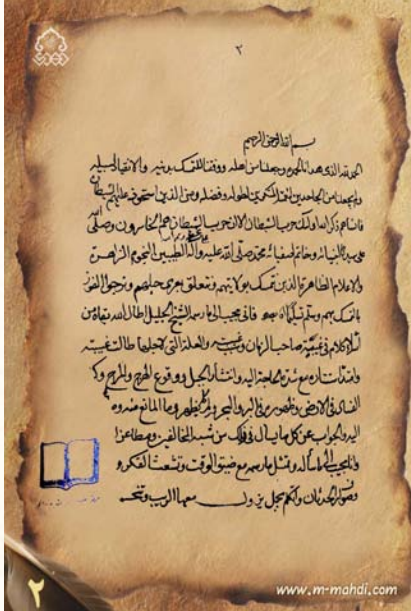 ٢
بسم الله الرحمن الرحيم
الحمد لله الذي هدانا لحمده وجعلنا من اهله ووفقنا للتمسك بدينه والانقياد لسبيله
ولم يجعلنا من الجاحدين لنعمته المنكرين لطوله وفضله ومن الذين استحوذ عليهم الشيطان
فانساهم ذكر الله اولئك حزب الشيطان الا ان حزب الشيطان هم الخاسرون وصلى الله
على سيد انبيائه وخاتم اصفيائه محمد صلى الله عليه وآله الطيبين النجوم الزاهرة
والاعلام الظاهرة الذين نتمسك بولايتهم ونتعلق بعرى حبلهم ونرجو الفوز
بالتمسك بهم وسلم تسليما فاني مجيب الى ما رسمه الشيخ الجليل اطال الله بقاه من
املاء كلام في غيبة صاحب الزمان وسبب غيبته والعلة التي لاجلها طالت غيبته
وامتداد استتاره مع شدة الحاجة اليه وانتشار الحيل ووقوع الهرج والمرج وكثرة
الفساد في الارض وظهوره في البر والبحر ولم لم يظهر وما المانع منه وما
اليه والجواب عن كل ما يسأل في ذلك من شبه المخالفين ومطاعن
وانا مجيب الى ما سأله وممتثل ما رسمه مع ضيق الوقت وتشعث الفكر و
وصوارف الحدثان واتكلم بجمل يزول معها الريب وتنحسم
٢
www.m-mahdi.com